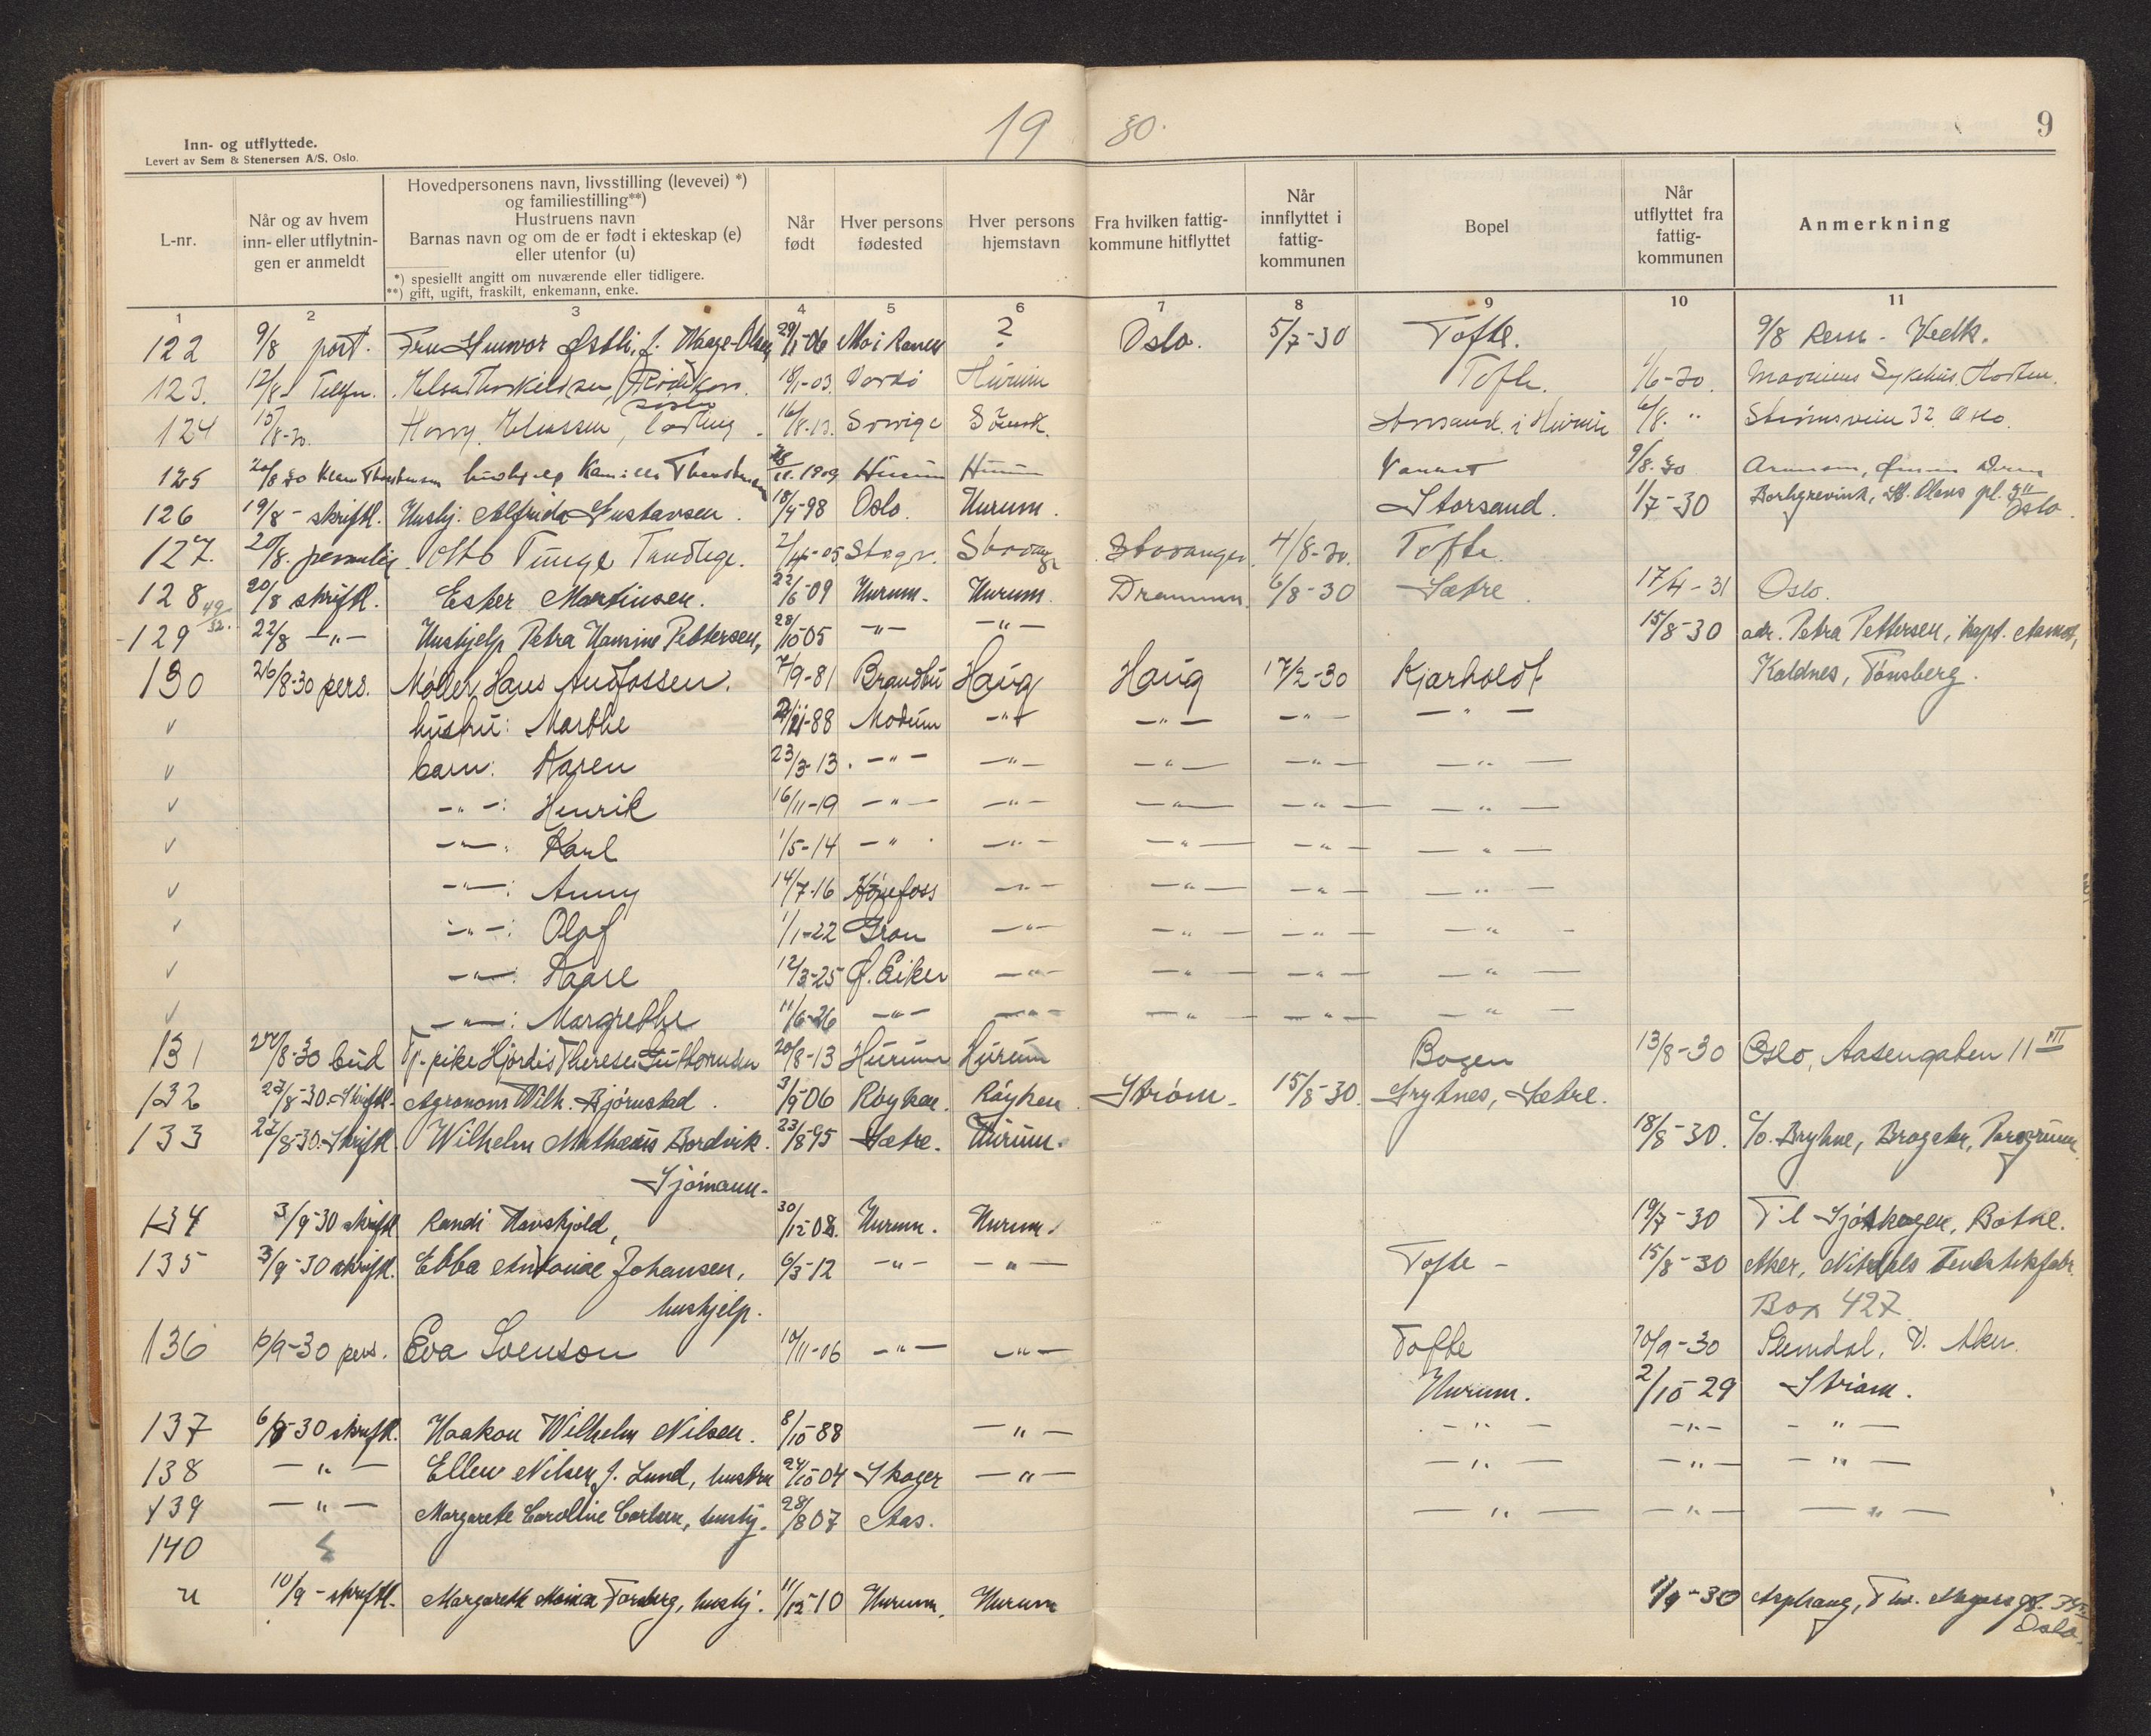 19 30.
9
Inn- og utflyttede.
Levert av Sem & Stenersen A/S. Oslo.
L-nr. Når og av hvem inn- eller utflytnin- gen er anmeldt Hovedpersonens navn, livsstilling (levevei) *) og familiestilling**) Hustruens navn Barnas navn og om de er født i ekteskap (e) eller utenfor (u) *) spesiellt angitt om nuværende eller tidligere. **) gift, ugift, fraskilt, enkemann, enke. Når født Hver persons fødested Hver persons hjemstavn Fra hvilken fattig- kommune hitflyttet Når innflyttet i fattig- kommunen Bopel Når utflyttet fra fattig- kommunen Anmerkning
1 2 3 4 5 6 7 8 9 10 11
122 9/8 Fru Gunvor Østli, f. Olsen 29/11-06 Mo i Ranen ? Oslo. 5/7-30 Tofte. 9/8 Rem. - Vedk.
123. 12/8- Telefon. Elsa Thorkildsen, 18/1-03 Vardø Hurum Tofte. 1/6-30. Sykehus. Horten.
søster
124 15/8-30. Harry 16/8-13. Sverige Svensk. Storsand i Hurum 6/8. " Strømsveien 32. Oslo.
125 20/8 30 hushjelp 11.1909 Hurum Hurum 9/8-30
126 19/8 - skriftl. Hushj. Alfrida Gustavsen. 18/4-98 Oslo. Hurum. Storsand. 1/7-30 Borhgrevink, St. Olavs pl. 3 II Oslo.
127. 20/8. personlig. Otto Tunge Tandlege. 2/4-05 Stvgr. Stavanger Stavanger 4/8-30. Tofte.
128 49/32. 20/8 skriftl. Ester Martinsen. 22/6-09 Hurum. Hurum. Drammen. 6/8-30 Sætre. 17/4-31 Oslo.
129 22/8 -"- Hushjelp Petra Hamine Pettersen, 28/10 05 -"- -"- 15/8-30 adr. Petra Pettersen, kapt. Aamot,
130 26/8-30 pers. Møller, Hans Andfossen. 7/9-81 Brandbu Haug Haug 17/2-30 Kjærholdt Kaldnes, Tønsberg.
v hustru: Marthe 11-88 Modum -"- -"- -"- -"-
v barn: Karen 23/3-13. -"- -"- -"- -"- -"-
v -"-: Henrik 16/11-19 -"- -"- -"- -"- -"-
v -"-: Karl 1/5-14 -"- -"- -"- -"- -"-
v -"-: Anny 14/7-16 Hønefoss -"- -"- -"- -"-
v -"-: Olaf 1/1-22 Gran -"- -"- -"- -"-
v -"-: Kaare 12/3-25 Ø. Eiker -"- -"- -"- -"-
v -"-: Margrethe 11/6-26 -"- -"- -"- -"- -"-
131 8-30 bud Tj.pike Hjørdis Therese Guttormsen 20/8-13 Hurum Hurum Bogen 13/8-30 Oslo, Aasengaten 11 III
132 27/8-30. Skriftl. Agronom Wilh. Bjørnstad. 3/9-06 Røyken. Røyken. Strøm. 15/8-30. Grytnes, Sætre.
133 27/8-30. Skriftl. Wilhelm Mathæus Bordvik. 23/8-95 Sætre. Hurum. 18/8-30. c/o. Bryhne,
Sjømann.
134 3/9-30 skriftl. Randi Havskjold, 30/12-08. Hurum. Hurum. 19/7-30 Til Sjøskogen, Botne.
135 3/9-30 skriftl. Ebba Antonie Johansen, 6/3-12 -"- -"- Tofte - 15/8-30 Aker, Nitedals Tendstikfabr.
hushjelp. Box 427
136 6/9-30 pers. Eva Svenson 10/11-06 -"- -"- Tofte 10/9-30 Slemdal, V. Aker.
Hurum. 2/10-29 Strøm.
137 6/8-30 skriftl. Haakon Wilhelm Nilsen. 8/10-88 -"- -"- -"- -"-
138 -"- Ellen Nilsen f. Lund, hustru 24/10 04 Skoger -"- -"- -"- -"-
139 -"- Margarete Caroline Carlsen, hushj. 28/8 07 Aas. -"- -"- -"-
140
" 10/9 - skriftl. Margareth Tornberg, hushj. 11/12-10 Hurum. Hurum 1/9-30 Asphaug, Oslo.